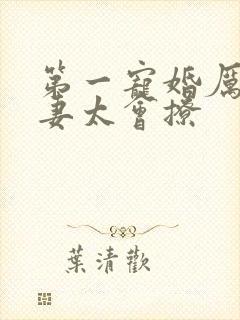 第一寵婚厲
妻太會撩
葉清歡